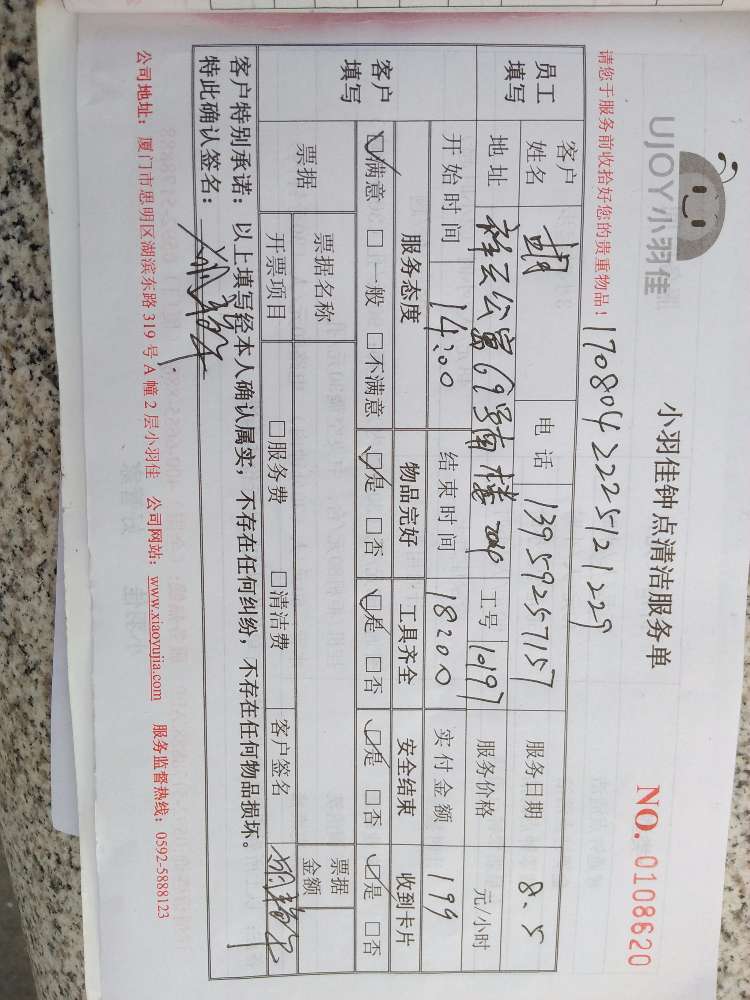 UJOY小羽佳
小羽佳钟点清洁服务单
NO. 0108620
请您于服务前收拾好您的贵重物品！
170804222512 1229
员工填写
客户姓名 胡 电话 13959257157 服务日期 8.5
地址 祥云公寓69号南楼 工号 10197 服务价格 元/小时
开始时间 14:00 结束时间 18:00 实付金额 199
客户填写
服务态度 物品完好 工具齐全 安全结束 收到卡片
☑满意 □一般 □不满意 ☑是 □否 ☑是 □否 ☑是 □否 ☑是 □否
票据 票据名称 票据金额
开票项目 □服务费 □清洁费 客户签名
客户特别承诺：以上填写经本人确认属实，不存在任何纠纷，不存在任何物品损坏。
特此确认签名：
公司地址：厦门市思明区湖滨东路 319 号 A 幢 2 层小羽佳 公司网站：www.xiaoyujia.com 服务监督热线：0592-5888123